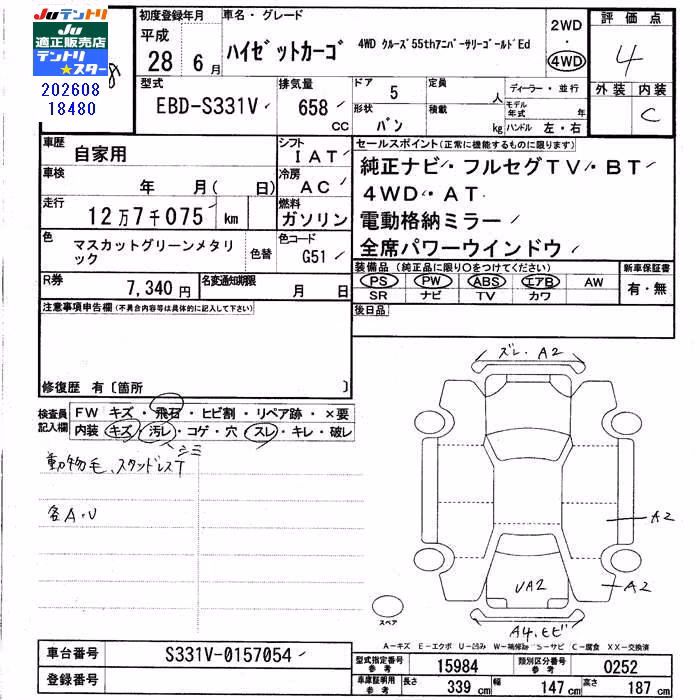 JUテントリ
JU
適正販売店
テントリ
★スター
202608
18480
初度登録年月
平成
28 6 月
車名・グレード
ハイゼットカーゴ
4WD クルーズ55thアニバーサリーゴールドEd
2WD
・
4WD
評価点
4
外装 内装
C
型式
EBD-S331V
排気量
658
CC
ドア
5
形状
バン
定員
人
積載
kg
ディーラー・並行
モデル年式 年
ハンドル 左・右
車歴
自家用
シフト
IAT
車検
年 月( 日)
冷房
AC
走行
12万7千075 km
燃料
ガソリン
色
マスカットグリーンメタリック
色替
色コード
G51
R券
7,340 円
名変通知期限
月 日
セールスポイント(正常に機能するものに限ります)
純正ナビ・フルセグTV・BT
4WD・AT
電動格納ミラー
全席パワーウインドウ
装備品 (純正品に限り○をつけてください)
PS PW ABS エアB AW
SR ナビ TV カワ
新車保証書
有・無
後日品
注意事項申告欄(不具合内容等は具体的に記入して下さい)
修復歴 有〔箇所 〕
検査員記入欄
FW キズ・飛石・ヒビ割・リペア跡・×要
内装 キズ・汚レ・コゲ・穴・スレ・キレ・破レ
シミ
動物毛、スタンドレスT
各A・U
ズレ、A2
A2
A2
UA2
A4、ヒビ
スペア
A-キズ E-エクボ U-凹み W-補修跡 S-サビ C-腐食 XX-交換済
車台番号
S331V-0157054
登録番号
型式指定番号 参考
15984
類別区分番号 参考
0252
車庫証明用 参考
長さ 339 cm
幅 147 cm
高さ 187 cm